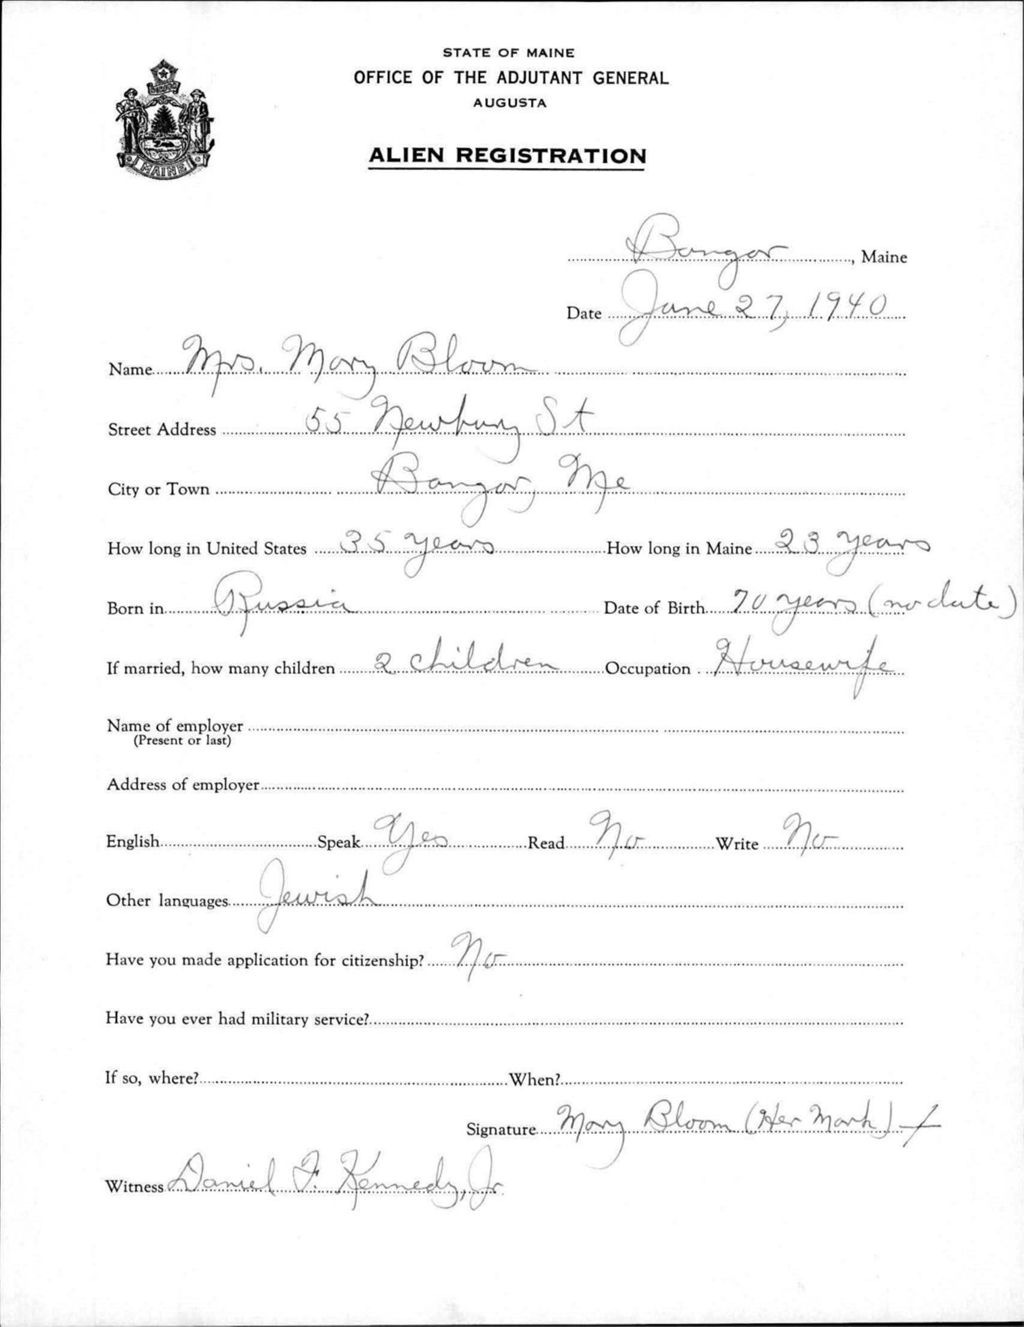 STATE OF MAINE
OFFICE OF THE ADJUTANT GENERAL
AUGUSTA
ALIEN REGISTRATION
MAINE
Bangor, Maine
Date June 27, 1940
Name Mrs. Mary Bloom
Street Address 55 Newbury St
City or Town Bangor, Me
How long in United States 35 years How long in Maine 23 years
Born in Russia Date of Birth 70 years (no date)
If married, how many children 2 children Occupation Housewife
Name of employer
(Present or last)
Address of employer
English Speak Yes Read No Write No
Other languages Jewish
Have you made application for citizenship? No
Have you ever had military service?
If so, where? When?
Signature Mary Bloom (Her Mark) X
Witness Daniel F. Kennedy, Jr.